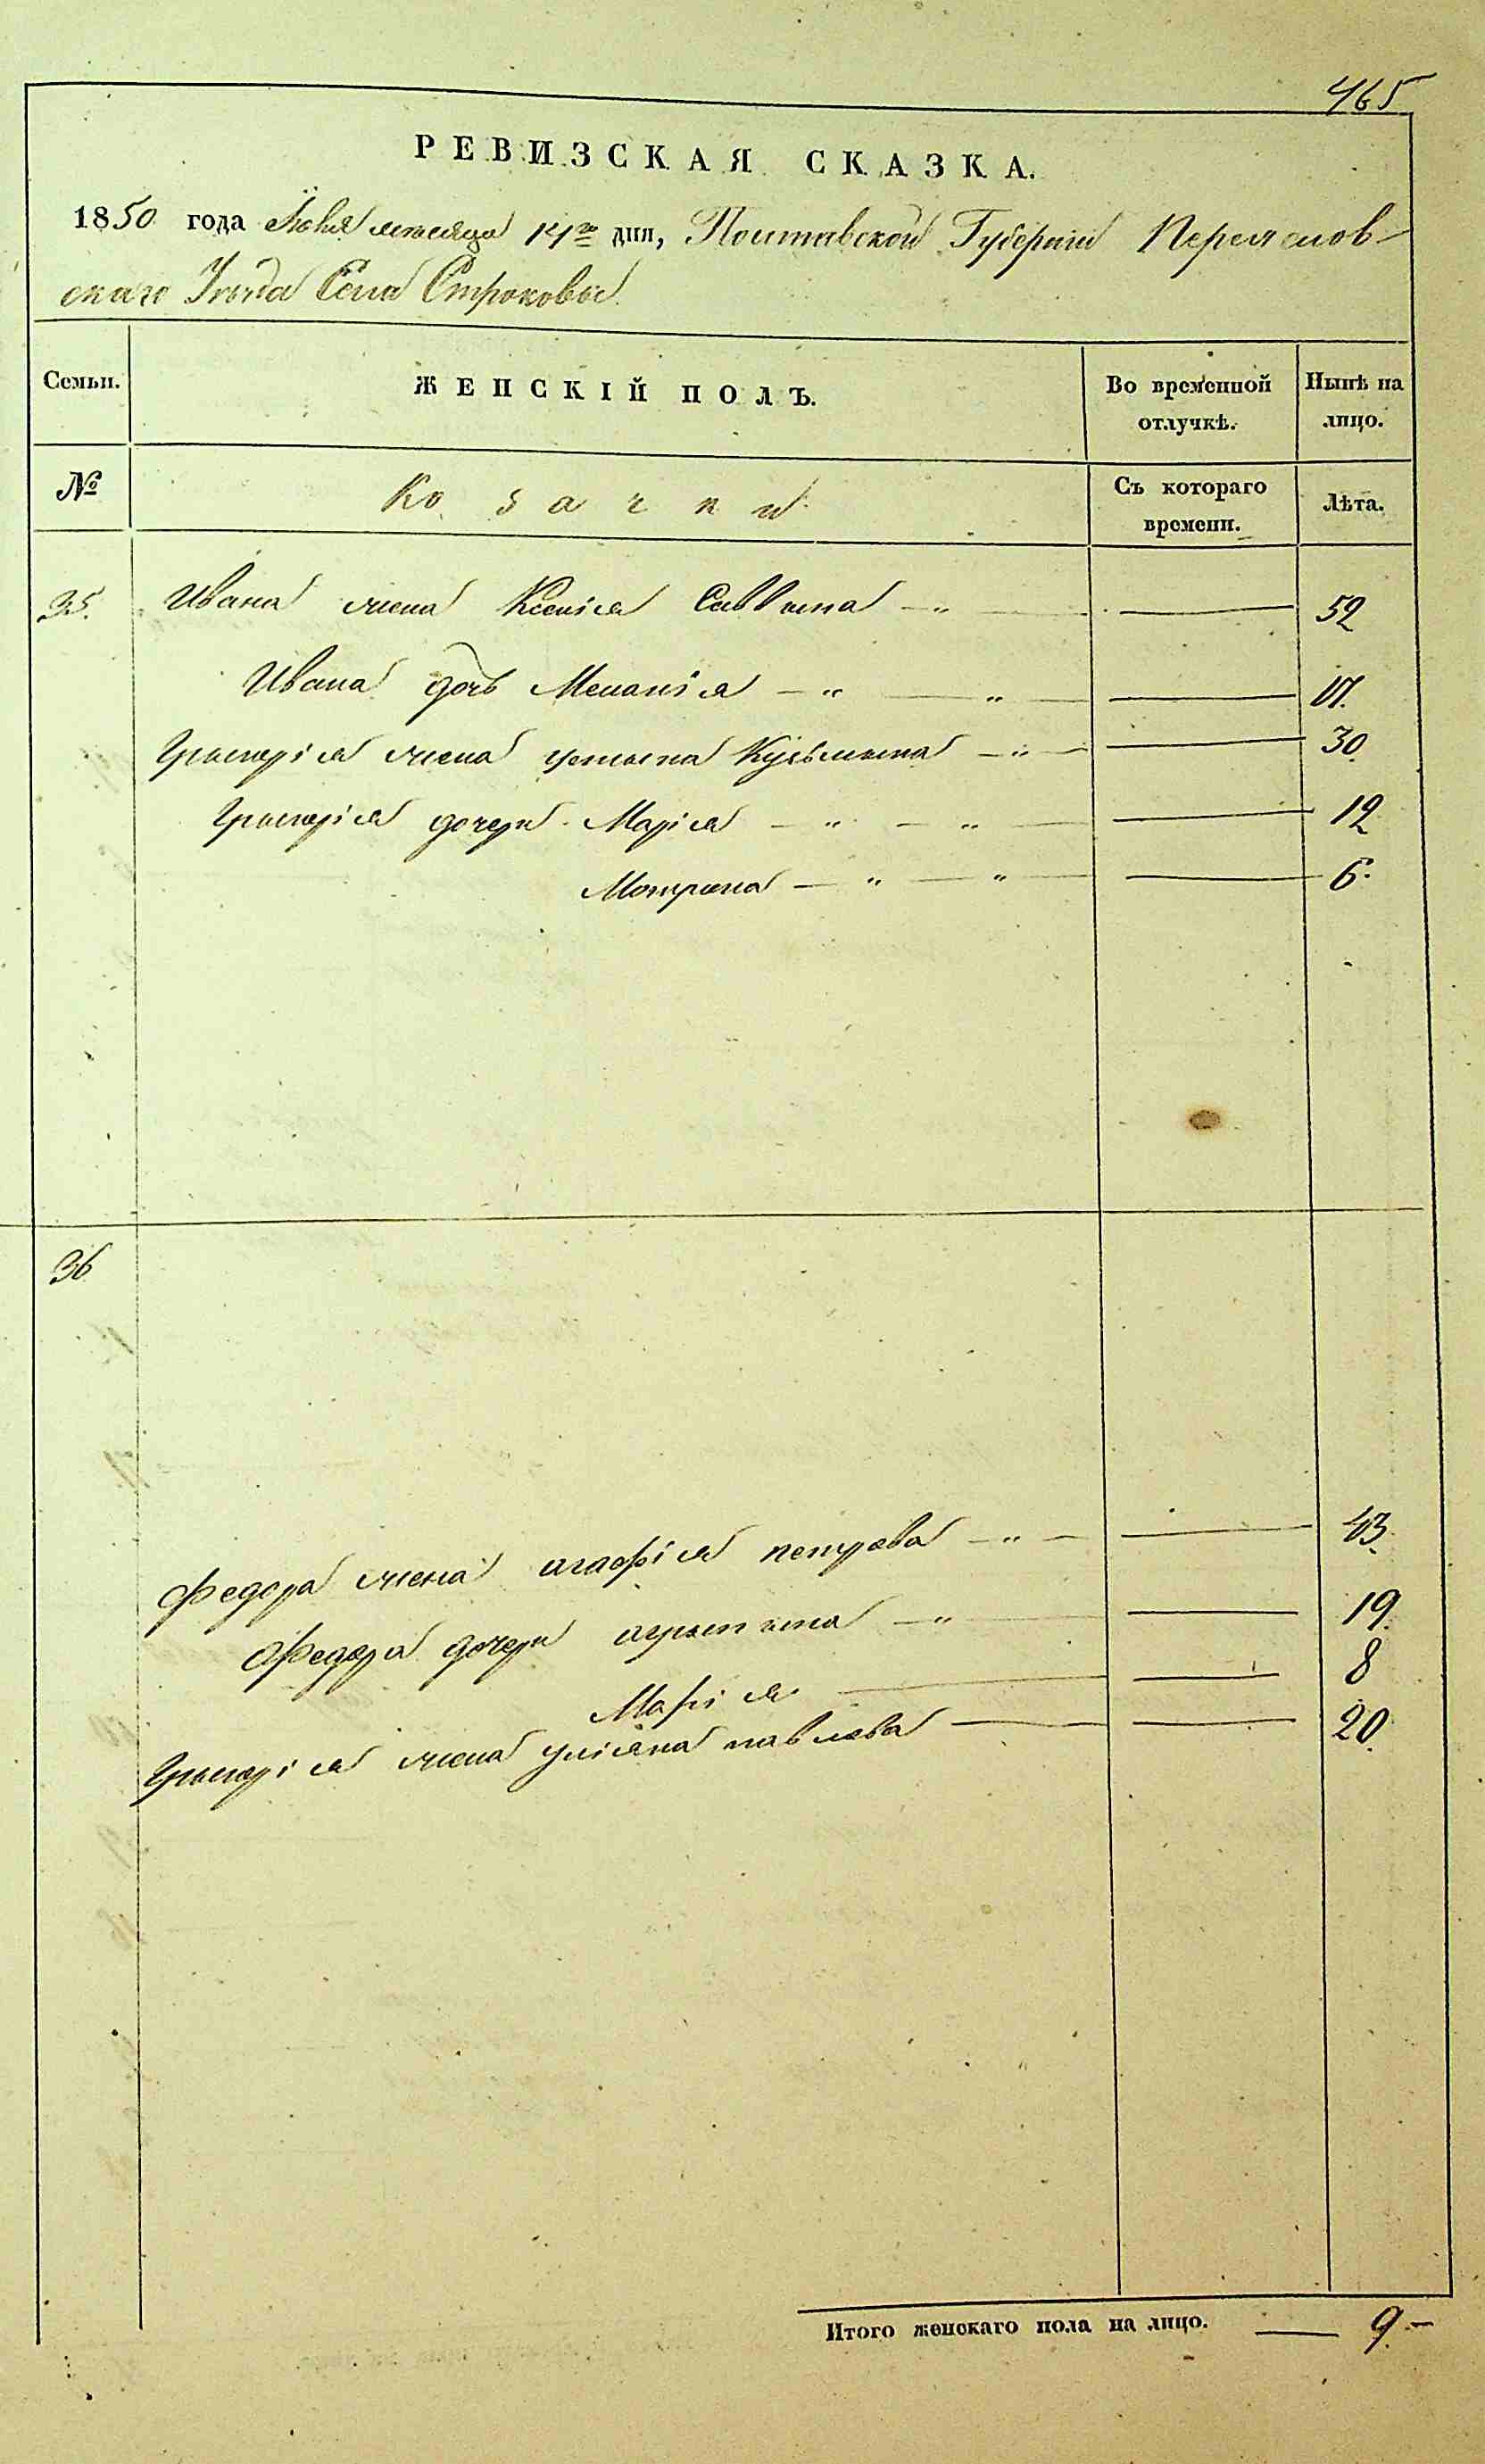 465
РЕВИЗСКАЯ СКАЗКА.
1850 года Июня месяца 14го дня, Полтавской Губернии Переяслов-
скаго Уезда Села Строковы
Семьи. ЖЕНСКІЙ ПОЛЪ. Во временной отлучкѣ. Нынѣ на лицо.
№ Козачки Съ котораго времени. Лѣта.
35. Ивана жена Ксенія Саввина — " — 52
Ивана дочь Меланія — " — " — 17.
Григорія жена Кузьмина — " — 30
Григорія дочери Марія — " — " — 12
Мотрина — " — " — 6.
36
Федора жена агафія петрова — " — 43.
Федора дочери агрипина — " — 19.
Марія — 8
Григорія жена уліяна павлова — 20.
Итого женскаго пола на лицо. — 9. —